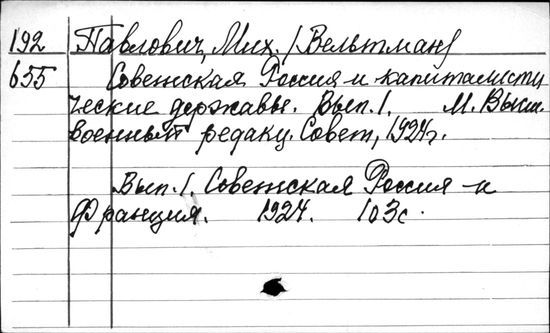 192 Павлович, Мих. /Вельтман/
655 Советская Россия и капиталисти
ческие державы. Вып. 1. М. Высш.
военный редакц. Совет, 1924г.
Вып. 1. Советская Россия и
Франция. 1924. 103с.